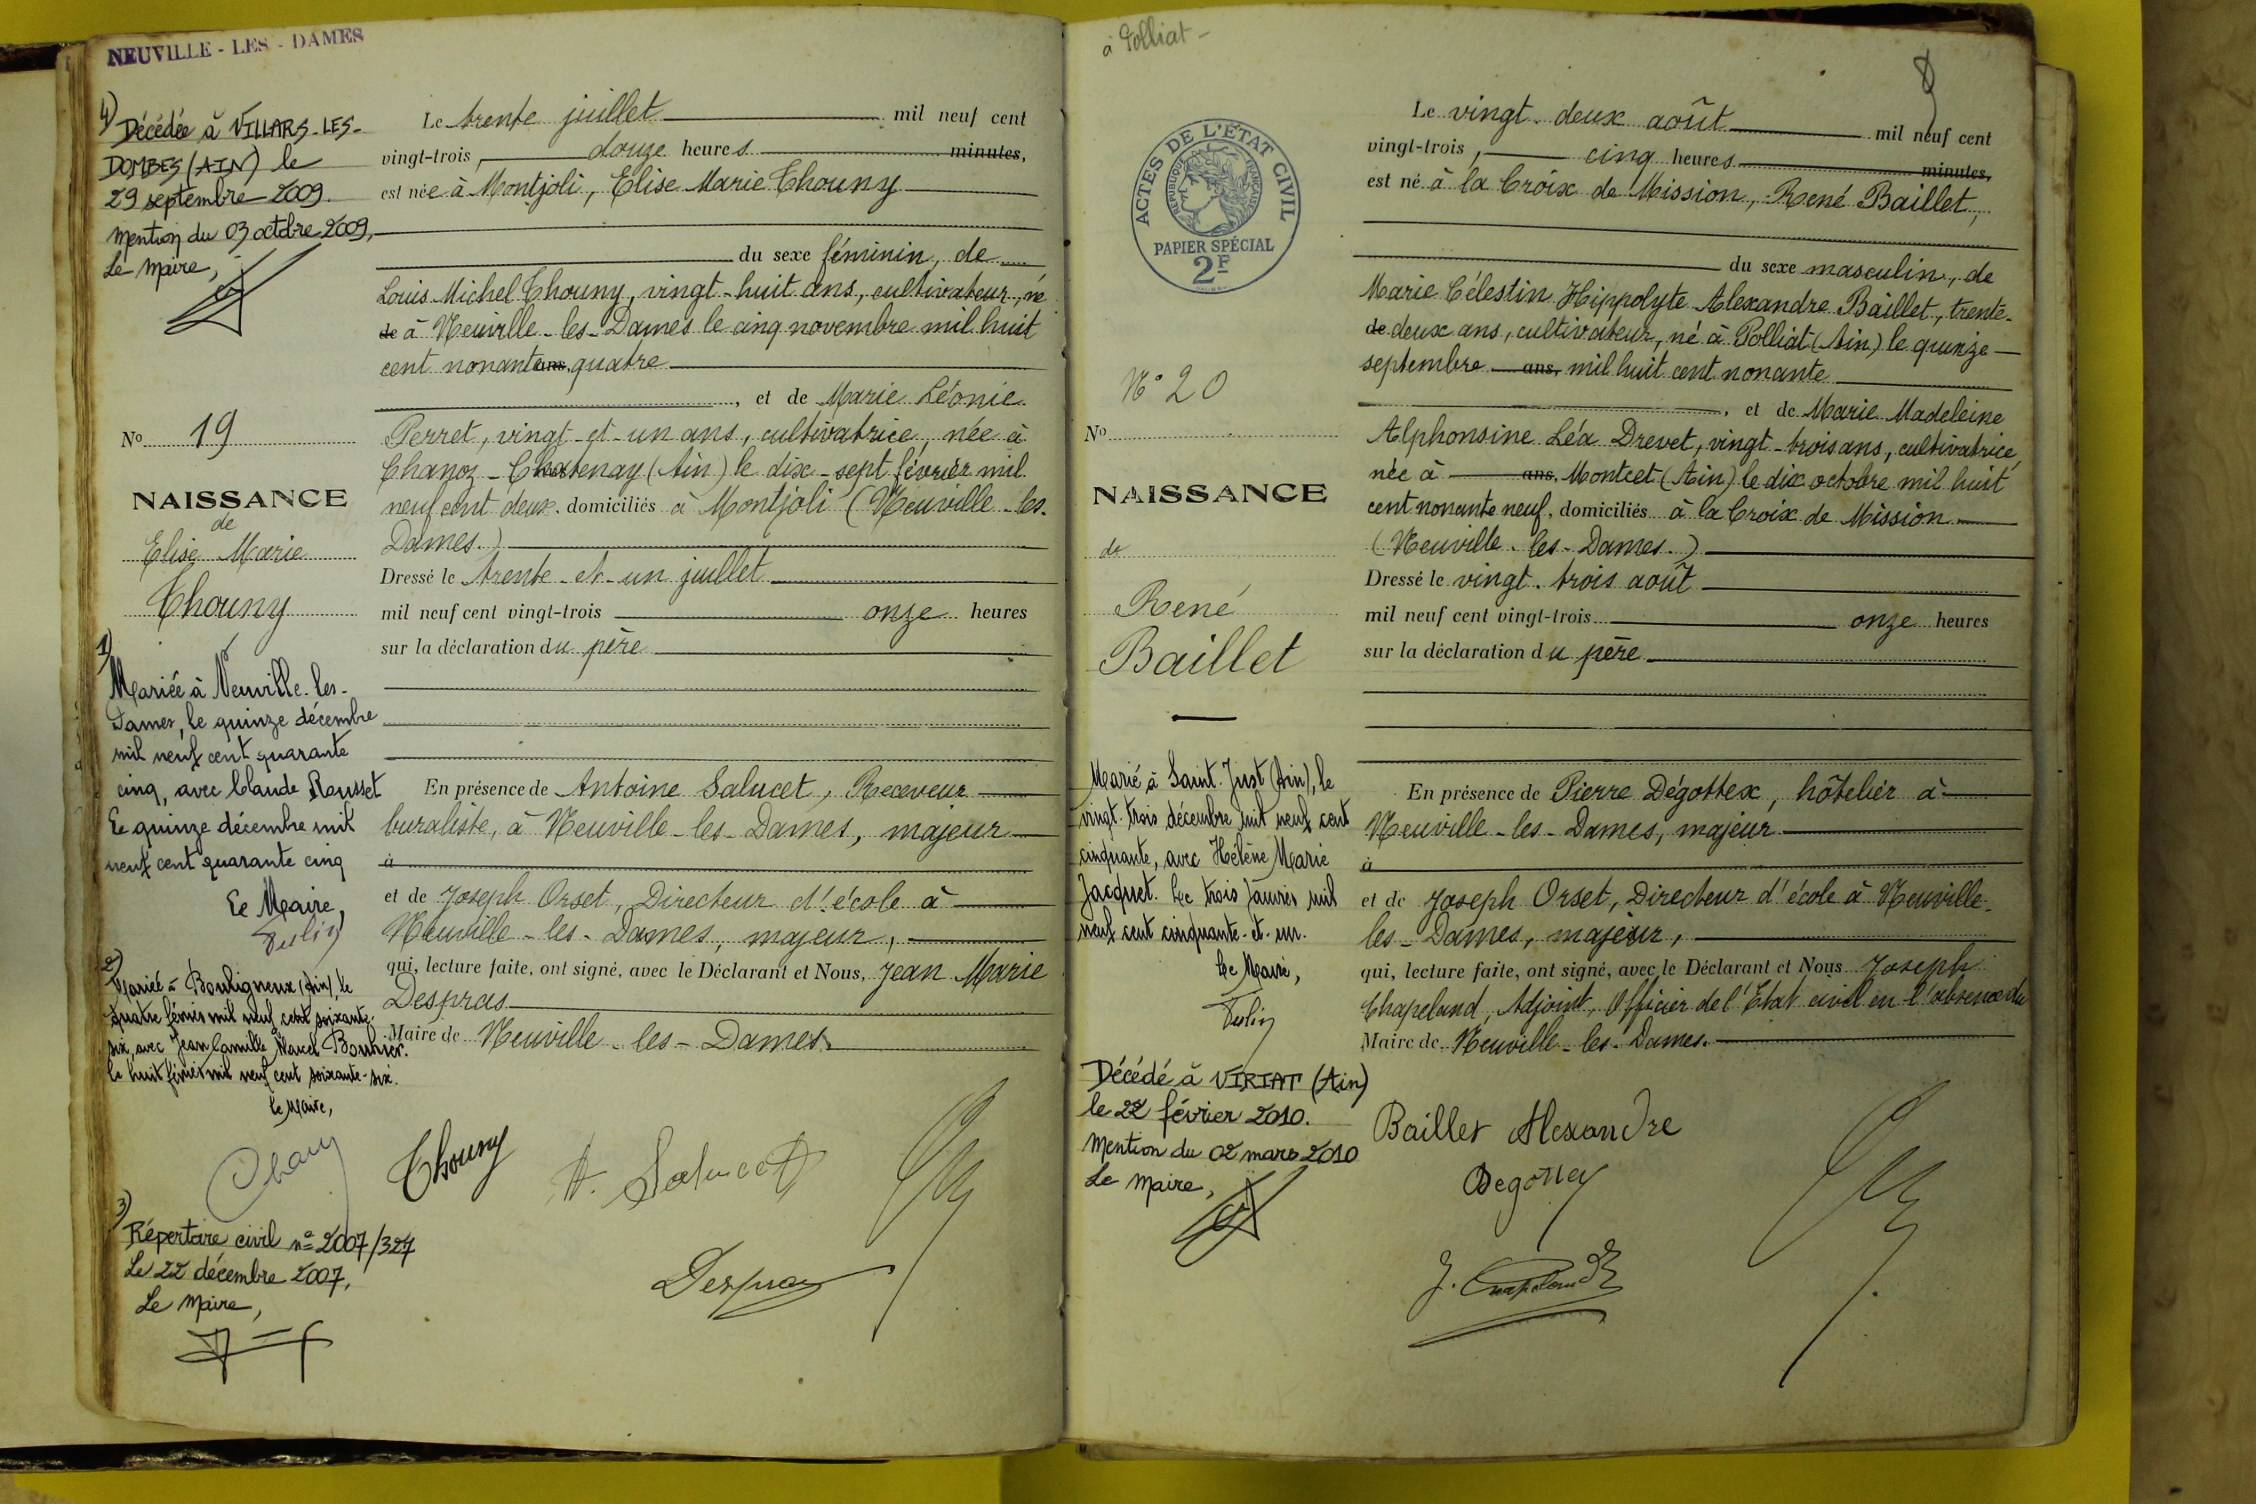 NEUVILLE - LES - DAMES
4) Décédée à VILLARS-LES-
DOMBES (AIN) le
29 septembre 2009.
Mention du 03 octobre 2009,
Le Maire,
No 19
NAISSANCE
de
Elise Marie
Thouny
1)
Mariée à Neuville-les-
Dames, le quinze décembre
mil neuf cent quarante
cinq, avec Claude Rousset
Le quinze décembre mil
neuf cent quarante cinq
Le Maire,
2)
Mariée à Bouligneux (Ain), le
quatre février mil neuf cent soixante-
six, avec Jean Camille Marcel Bouhier.
le huit février mil neuf cent soixante-six.
Le Maire,
3)
Répertoire civil n° 2007/327
Le 22 décembre 2007,
Le Maire,
Le trente juillet mil neuf cent
vingt-trois, douze heures minutes,
est née à Montjoli, Elise Marie Thouny
du sexe féminin, de
Louis Michel Thouny, vingt-huit ans, cultivateur, né
de à Neuville-les-Dames le cinq novembre mil huit
cent nonante ans, quatre
, et de Marie Léonie
Perret, vingt-et-un ans, cultivatrice, née à
Chanoz-Chatenay (Ain) le dix-sept février mil
neuf cent deux, domiciliés à Montjoli (Neuville-les-
Dames.)
Dressé le trente-et-un juillet
mil neuf cent vingt-trois onze heures
sur la déclaration du père
En présence de Antoine Salucet, Receveur
buraliste, à Neuville-les-Dames, majeur
à
et de Joseph Orset, Directeur d'école à
Neuville-les-Dames, majeur,
qui, lecture faite, ont signé, avec le Déclarant et Nous, Jean Marie
Despras
Maire de Neuville-les-Dames.
Thouny A. Salucet
Despras
à Polliat -
8
ACTES DE L'ÉTAT CIVIL
RÉPUBLIQUE FRANÇAISE
PAPIER SPÉCIAL
2F
N° 20
No
NAISSANCE
de
René
Baillet
Marié à Saint-Just (Ain), le
vingt-trois décembre mil neuf cent
cinquante, avec Hélène Marie
Jacquet. Le trois janvier mil
neuf cent cinquante-et-un.
Le Maire,
Décédé à VIRIAT (Ain)
le 22 février 2010.
Mention du 02 mars 2010
Le Maire,
Le vingt-deux août mil neuf cent
vingt-trois, cinq heures minutes,
est né à la Croix de Mission, René Baillet,
du sexe masculin, de
Marie Célestin Hippolyte Alexandre Baillet, trente-
de deux ans, cultivateur, né à Polliat (Ain) le quinze
septembre ans, mil huit cent nonante
, et de Marie Madeleine
Alphonsine Léa Drevet, vingt-trois ans, cultivatrice,
née à ans, Montcet (Ain) le dix octobre mil huit
cent nonante neuf, domiciliés à la Croix de Mission
(Neuville-les-Dames.)
Dressé le vingt-trois août
mil neuf cent vingt-trois onze heures
sur la déclaration du père
En présence de Pierre Dégottex, hôtelier à
Neuville-les-Dames, majeur
à
et de Joseph Orset, Directeur d'école à Neuville-
les-Dames, majeur,
qui, lecture faite, ont signé, avec le Déclarant et Nous Joseph
Chapeland, Adjoint, Officier de l'Etat civil en l'absence du
Maire de Neuville-les-Dames.
Baillet Alexandre
Degottex
J. Chapeland